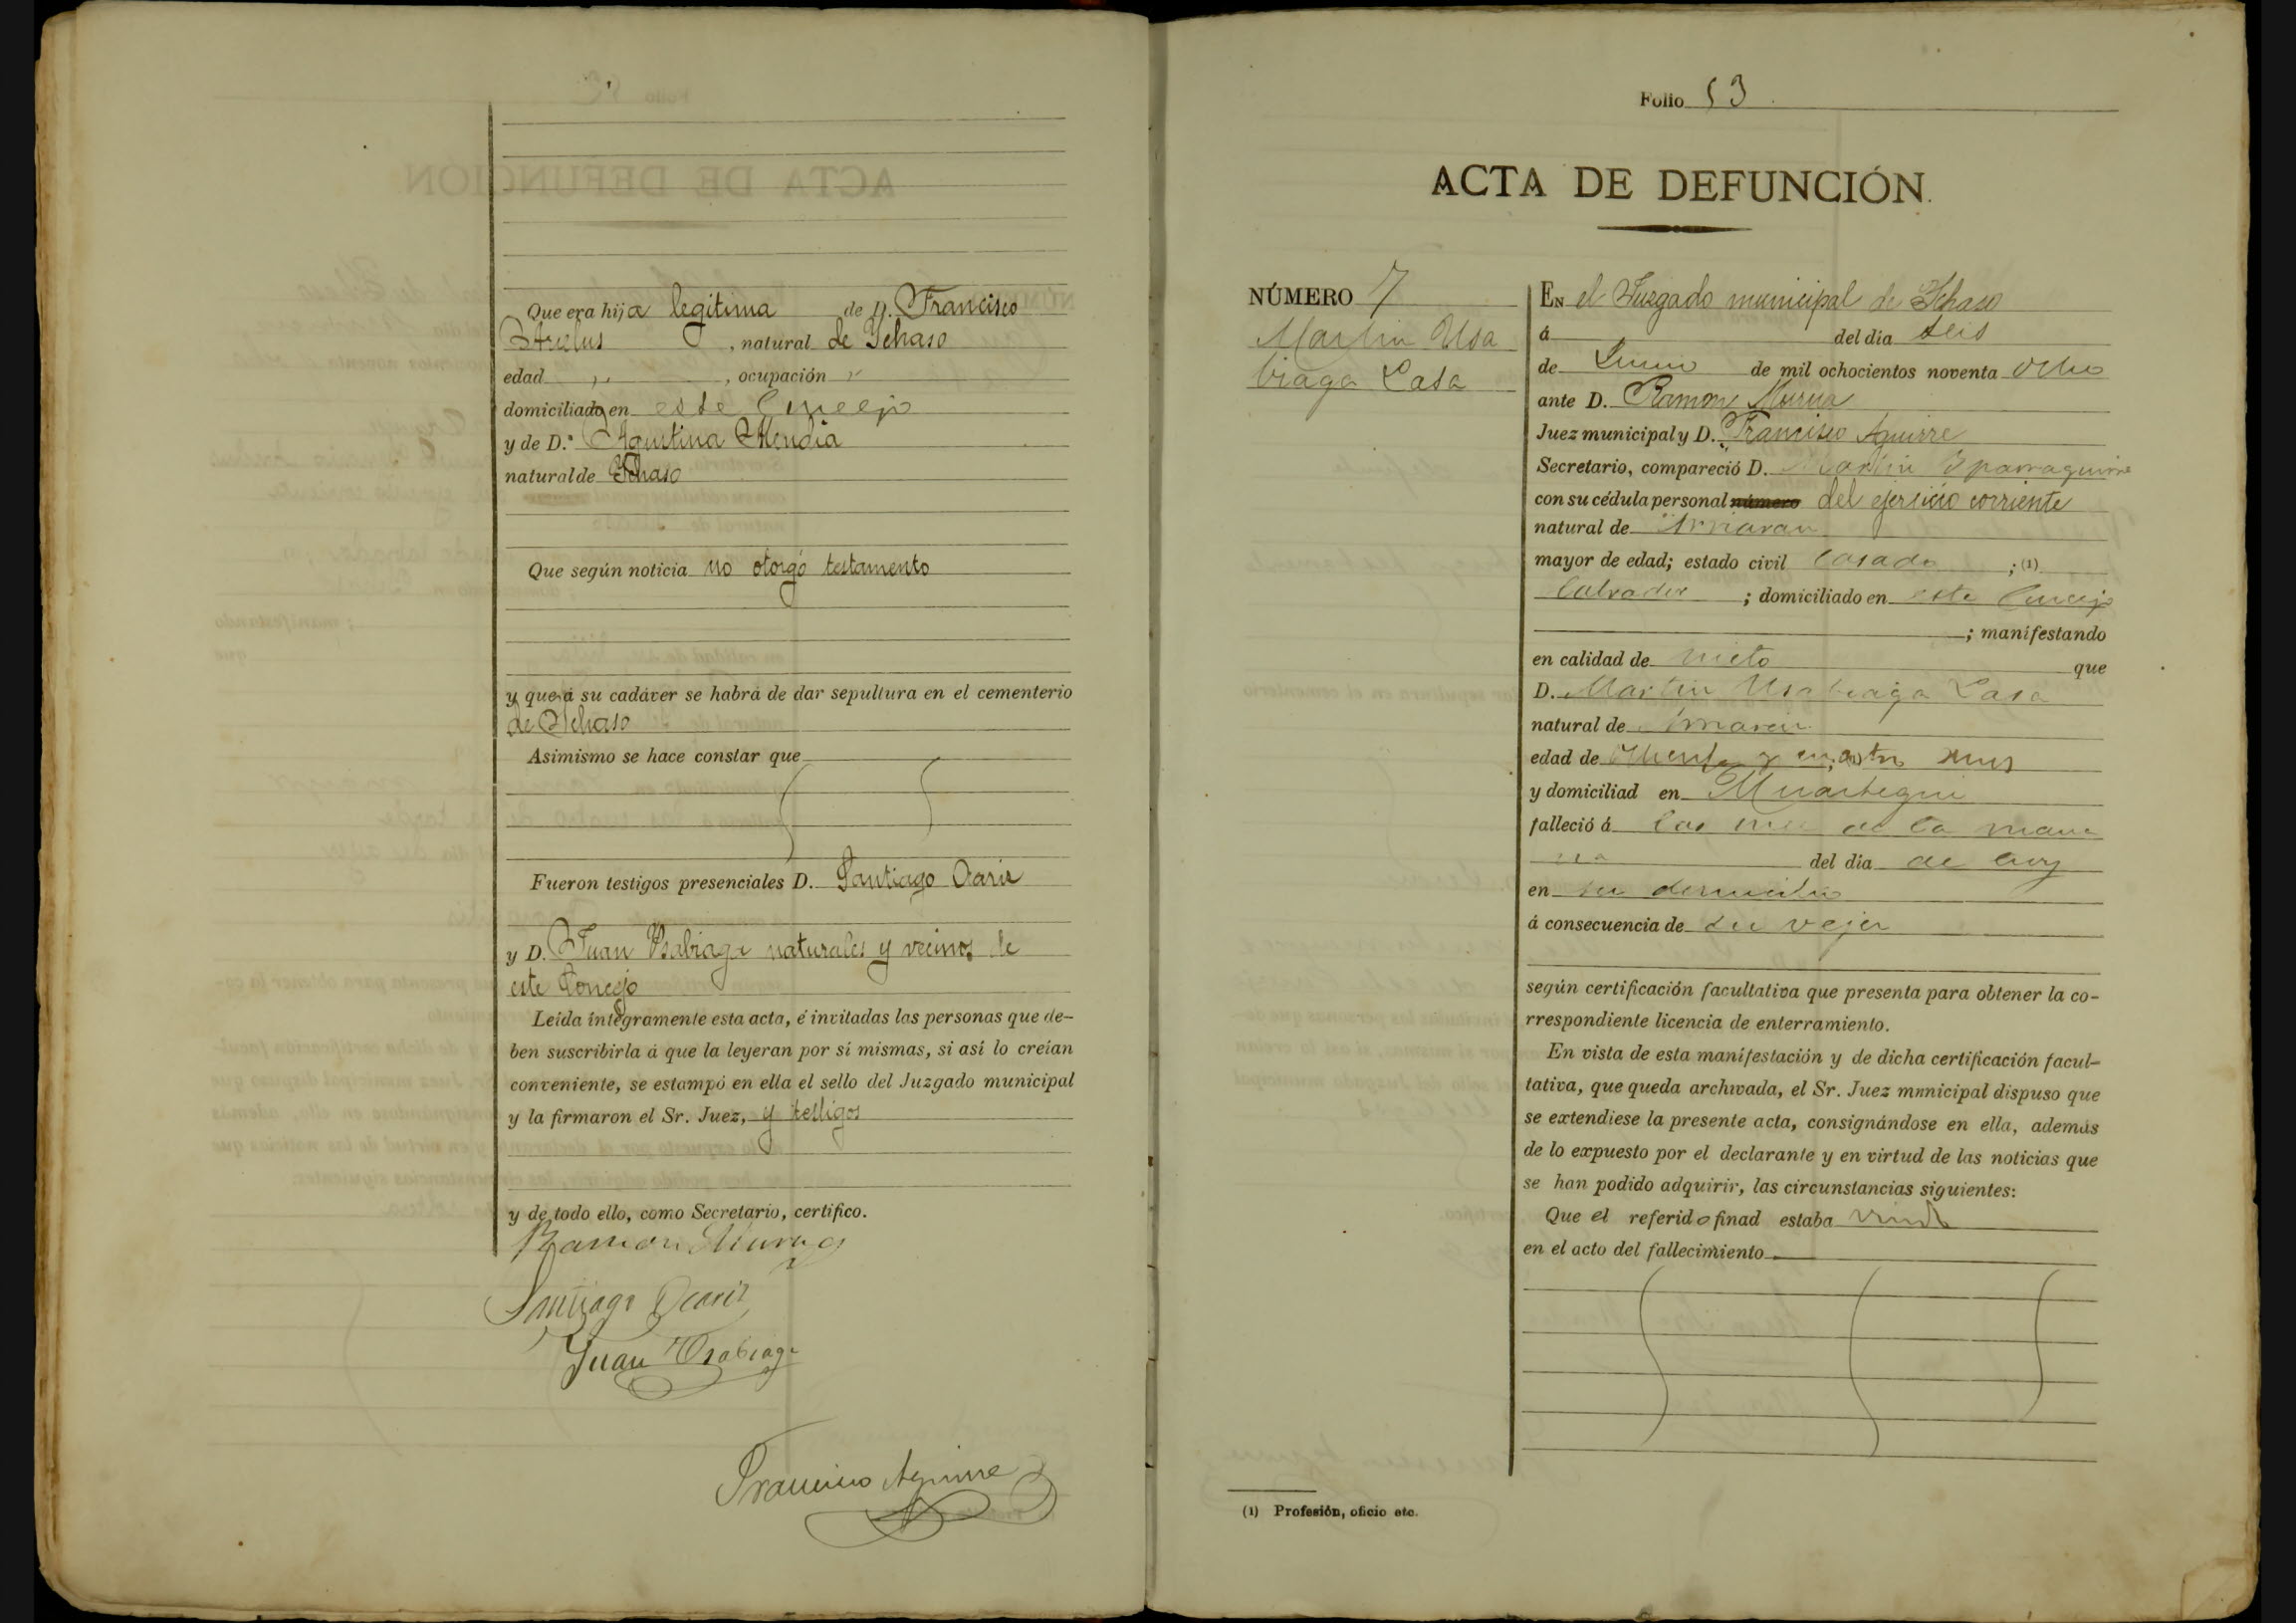 Que era hija legitima de D. Francisco
Arcelus, natural de Ychaso
edad ,, , ocupación "
domiciliado en este Concejo
y de D.ª Agustina Mendia
natural de Ychaso
Que según noticia no otorgó testamento
y que á su cadáver se habrá de dar sepultura en el cementerio
de Ychaso
Asimismo se hace constar que
Fueron testigos presenciales D. Santiago Ocariz
y D. Juan Usabiaga naturales y vecinos de
este Concejo
Leída íntegramente esta acta, é invitadas las personas que de-
ben suscribirla á que la leyeran por sí mismas, si así lo creían
conveniente, se estampó en ella el sello del Juzgado municipal
y la firmaron el Sr. Juez, y testigos
y de todo ello, como Secretario, certifico.
Ramon Murua
Santiago Ocariz
Juan Usabiaga
Francisco Aguirre
Folio 53
ACTA DE DEFUNCIÓN.
NÚMERO 7
Martin Usa
biaga Lasa
EN el Juzgado municipal de Ychaso
á del dia seis
de Junio de mil ochocientos noventa ocho
ante D. Ramon Murua
Juez municipal y D. Francisco Aguirre
Secretario, compareció D. Martin Yparraguirre
con su cédula personal número del ejercicio corriente
natural de Arriaran
mayor de edad; estado civil casado ; (1)
labrador ; domiciliado en este Concejo
; manifestando
en calidad de nieto que
D. Martin Usabiaga Lasa
natural de Arriaran
edad de ochenta y cuatro años
y domiciliad en
falleció á las de la maña
na del dia de hoy
en su domicilio
á consecuencia de su vejez
según certificación facultativa que presenta para obtener la co-
rrespondiente licencia de enterramiento.
En vista de esta manifestación y de dicha certificación facul-
tativa, que queda archivada, el Sr. Juez mnnicipal dispuso que
se extendiese la presente acta, consignándose en ella, además
de lo expuesto por el declarante y en virtud de las noticias que
se han podido adquirir, las circunstancias siguientes:
Que el referido finad estaba viudo
en el acto del fallecimiento
(1) Profesión, oficio etc.